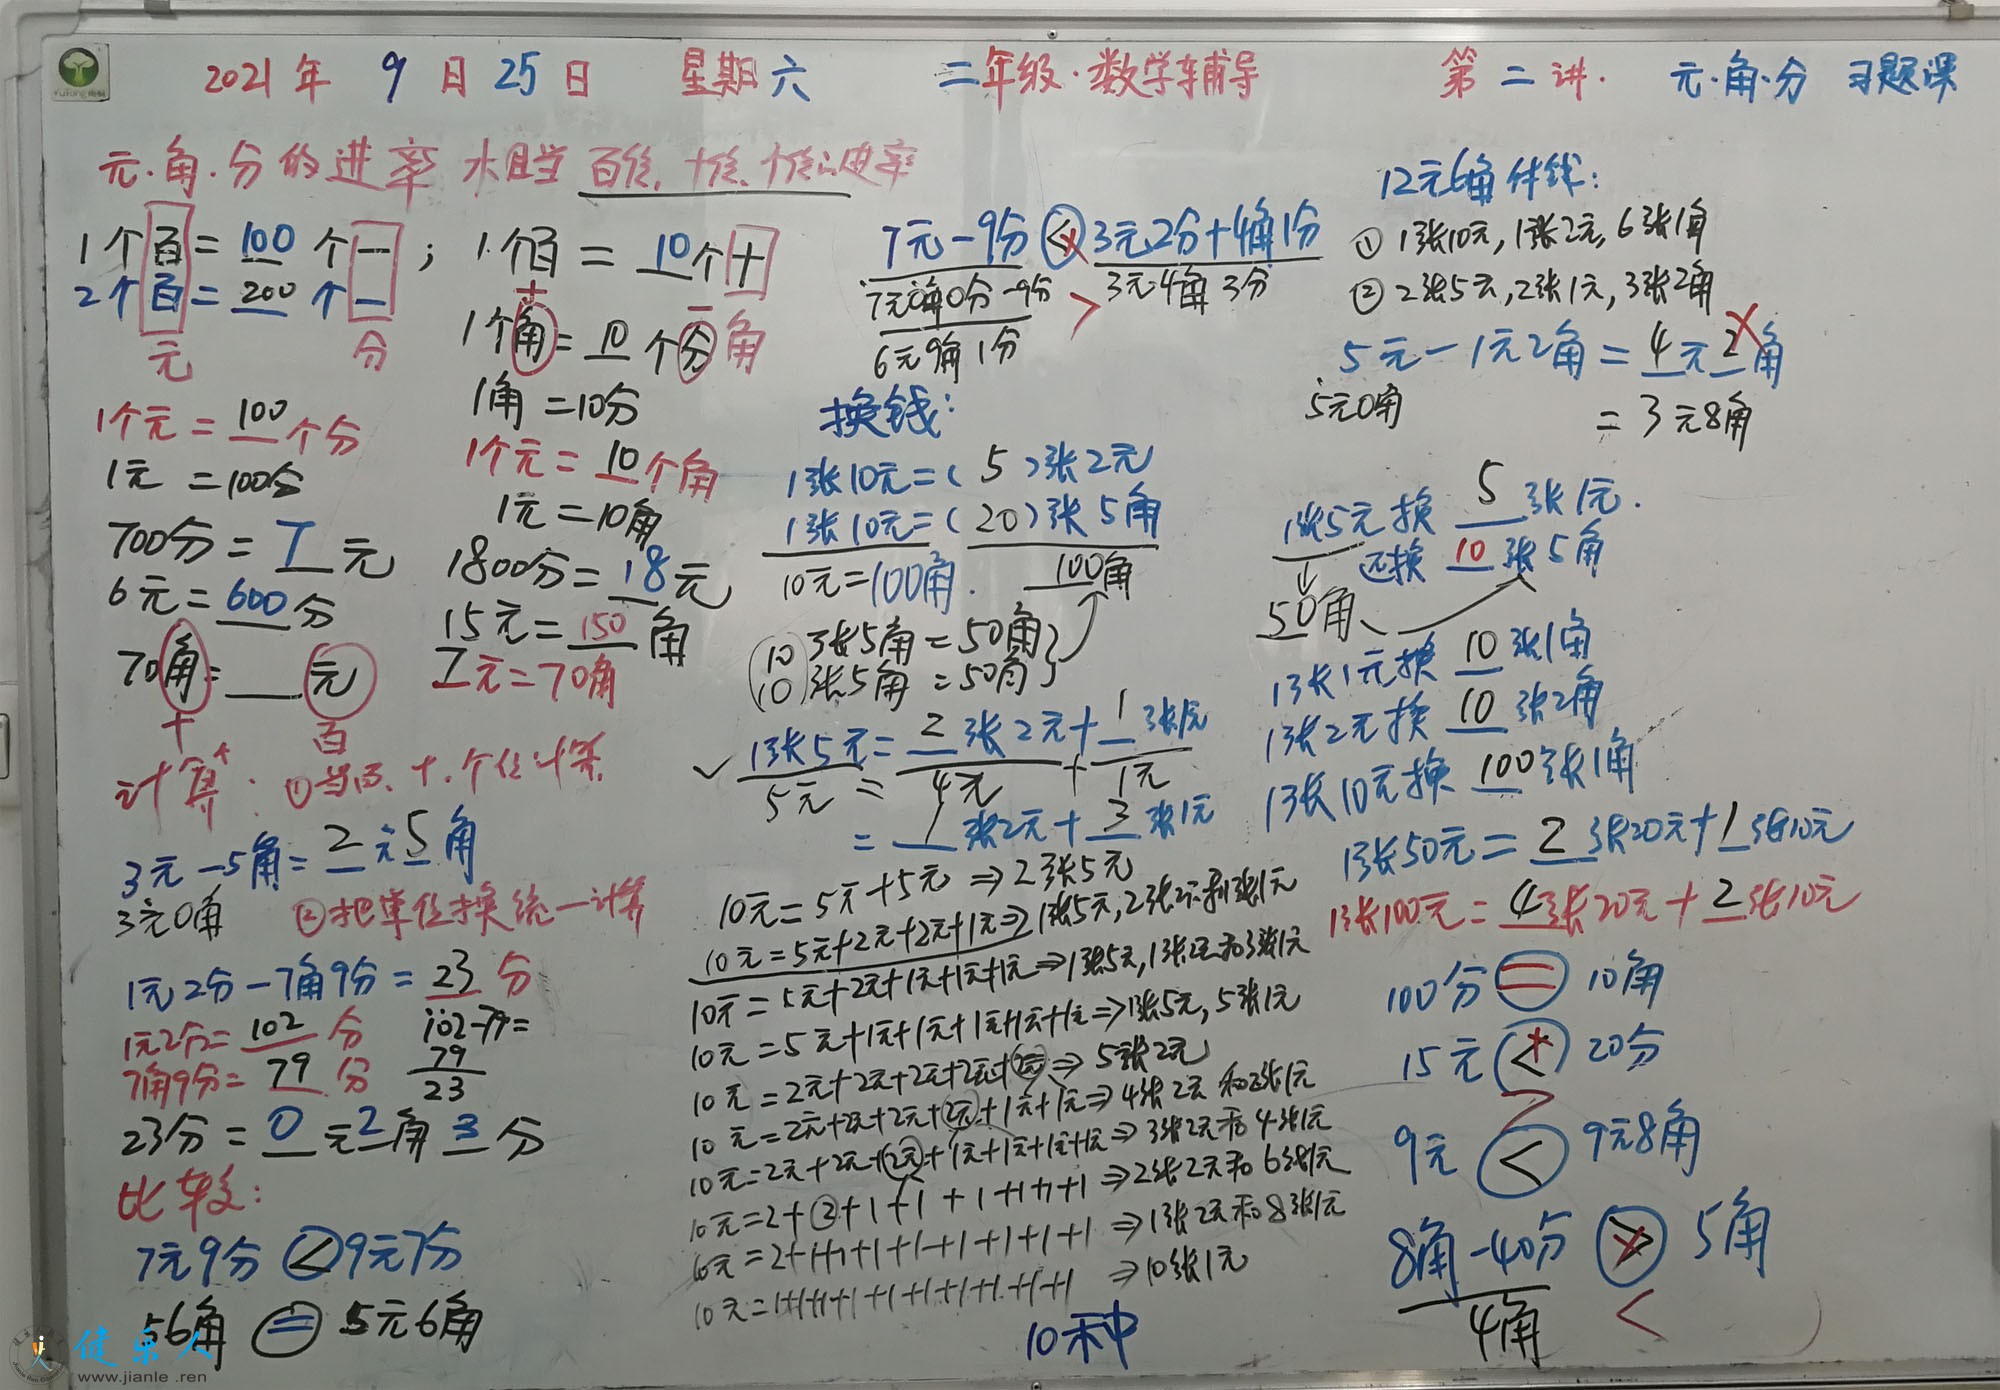 2021年 9月25日 星期六 二年级·数学辅导 第二讲. 元·角·分 习题课
元·角·分的进率 相当 百位、十位、个位的进率
1个百=100个一;
2个百=200个一
元 分
1个元=100个分
1元=100分
700分=7元
6元=600分
70角=__元
十 百
1个百=10个十
十 一 角
1个角=10个分
1角=10分
1个元=10个角
1元=10角
1800分=18元
15元=150角
7元=70角
计算: ①当百、十、个位计算.
3元-5角=2元5角
3元0角 ②把单位换统一计算
1元2分-7角9分=23分
1元2分=102分
7角9分=79分
102-79=
79
23
23分=0元2角3分
比较:
7元9分<9元7分
56角=5元6角
7元-9分<3元2分+4角1分
7元0角0分-9分 > 3元4角3分
6元9角1分
换钱:
1张10元=(5)张2元
1张10元=(20)张5角
10元=100角. 100角
10张5角=50角
10张5角=50角
✓ 1张5元=2张2元+1张1元
5元=4元+1元
=1张2元+3张1元
10元=5元+5元⇒2张5元
10元=5元+2元+2元+1元⇒1张5元,2张2元和1张1元
10元=5元+2元+1元+1元+1元⇒1张5元,1张2元和3张1元
10元=5元+1元+1元+1元+1元+1元⇒1张5元,5张1元
10元=2元+2元+2元+2元+2元⇒5张2元
10元=2元+2元+2元+2元+1元+1元⇒4张2元和2张1元
10元=2元+2元+2元+1元+1元+1元+1元⇒3张2元和4张1元
10元=2+2+1+1+1+1+1+1⇒2张2元和6张1元
10元=2+1+1+1+1+1+1+1+1⇒1张2元和8张1元
10元=1+1+1+1+1+1+1+1+1+1⇒10张1元
10种
12元6角付钱:
①1张10元,1张2元,6张1角
②2张5元,2张1元,3张2角
5元-1元2角=4元2角
5元0角 =3元8角
1张5元换5张1元.
还换10张5角
50角
1张1元换10张1角
1张2元换10张2角
1张10元换100张1角
1张50元=2张20元+1张10元
1张100元=4张20元+2张10元
100分=10角
15元<20分
>
9元<9元8角
8角-40分>5角
4角 <
健乐人
www.jianle.ren